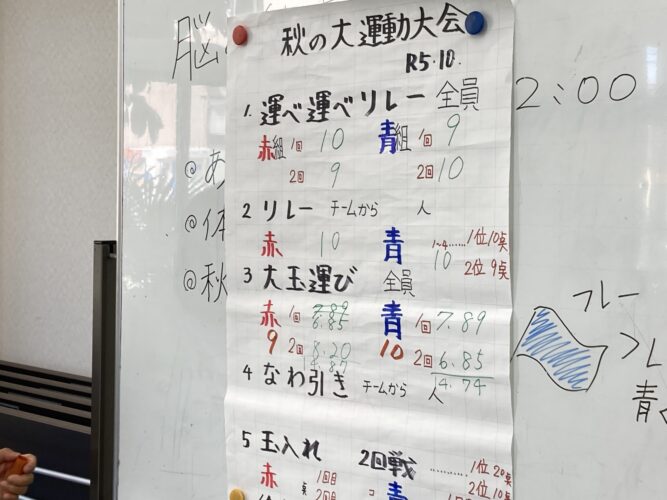 秋の大運動大会
R5.10.
脳
2:00
1. 運べ運べリレー 全員
赤組 1回 10 青組 1回 9
2回 9 2回 10
@あ
@体
@秋
2 リレー チームから 人
赤 10 青 10 1~4……1位10点
2位 9点
3 大玉運び 全員
赤 1回 青 1回 7.89
6.85
9 2回 8.20 10 2回 6.85
14.74
4 なわ引き チームから 人
5 玉入れ 2回戦 1位20点
2位10点
赤 1回目 青
2回目
フレー
青